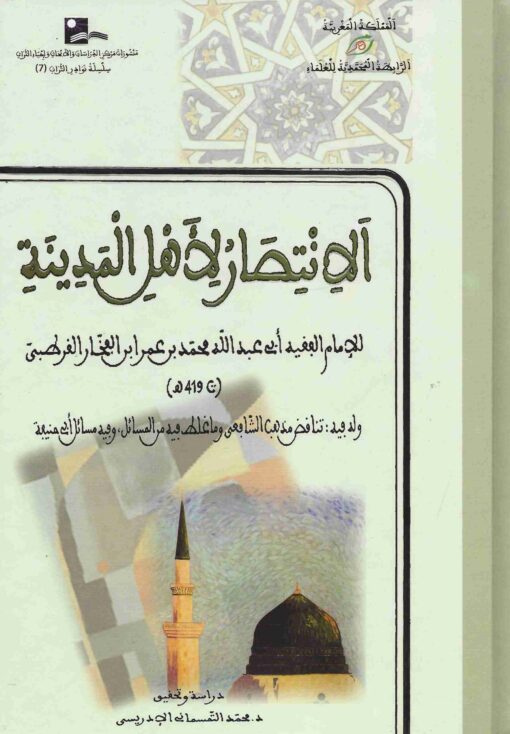 المملكة المغربية
الرابطة المحمدية للعلماء
منشورات مركز الدراسات والأبحاث وإحياء التراث
سلسلة نوادر التراث (7)
اَلاِنْتِصَارُ لِأَهْلِ الْمَدِينَةِ
للإمام الفقيه أبي عبد الله محمد بن عمر ابن الفخار القرطبي
(ت 419 هـ)
وله فيه: تناقض مذهب الشافعي وما غلط فيه من المسائل، وفيه مسائل أبي حنيفة
دراسة وتحقيق
د. محمد التمسماني الإدريسي